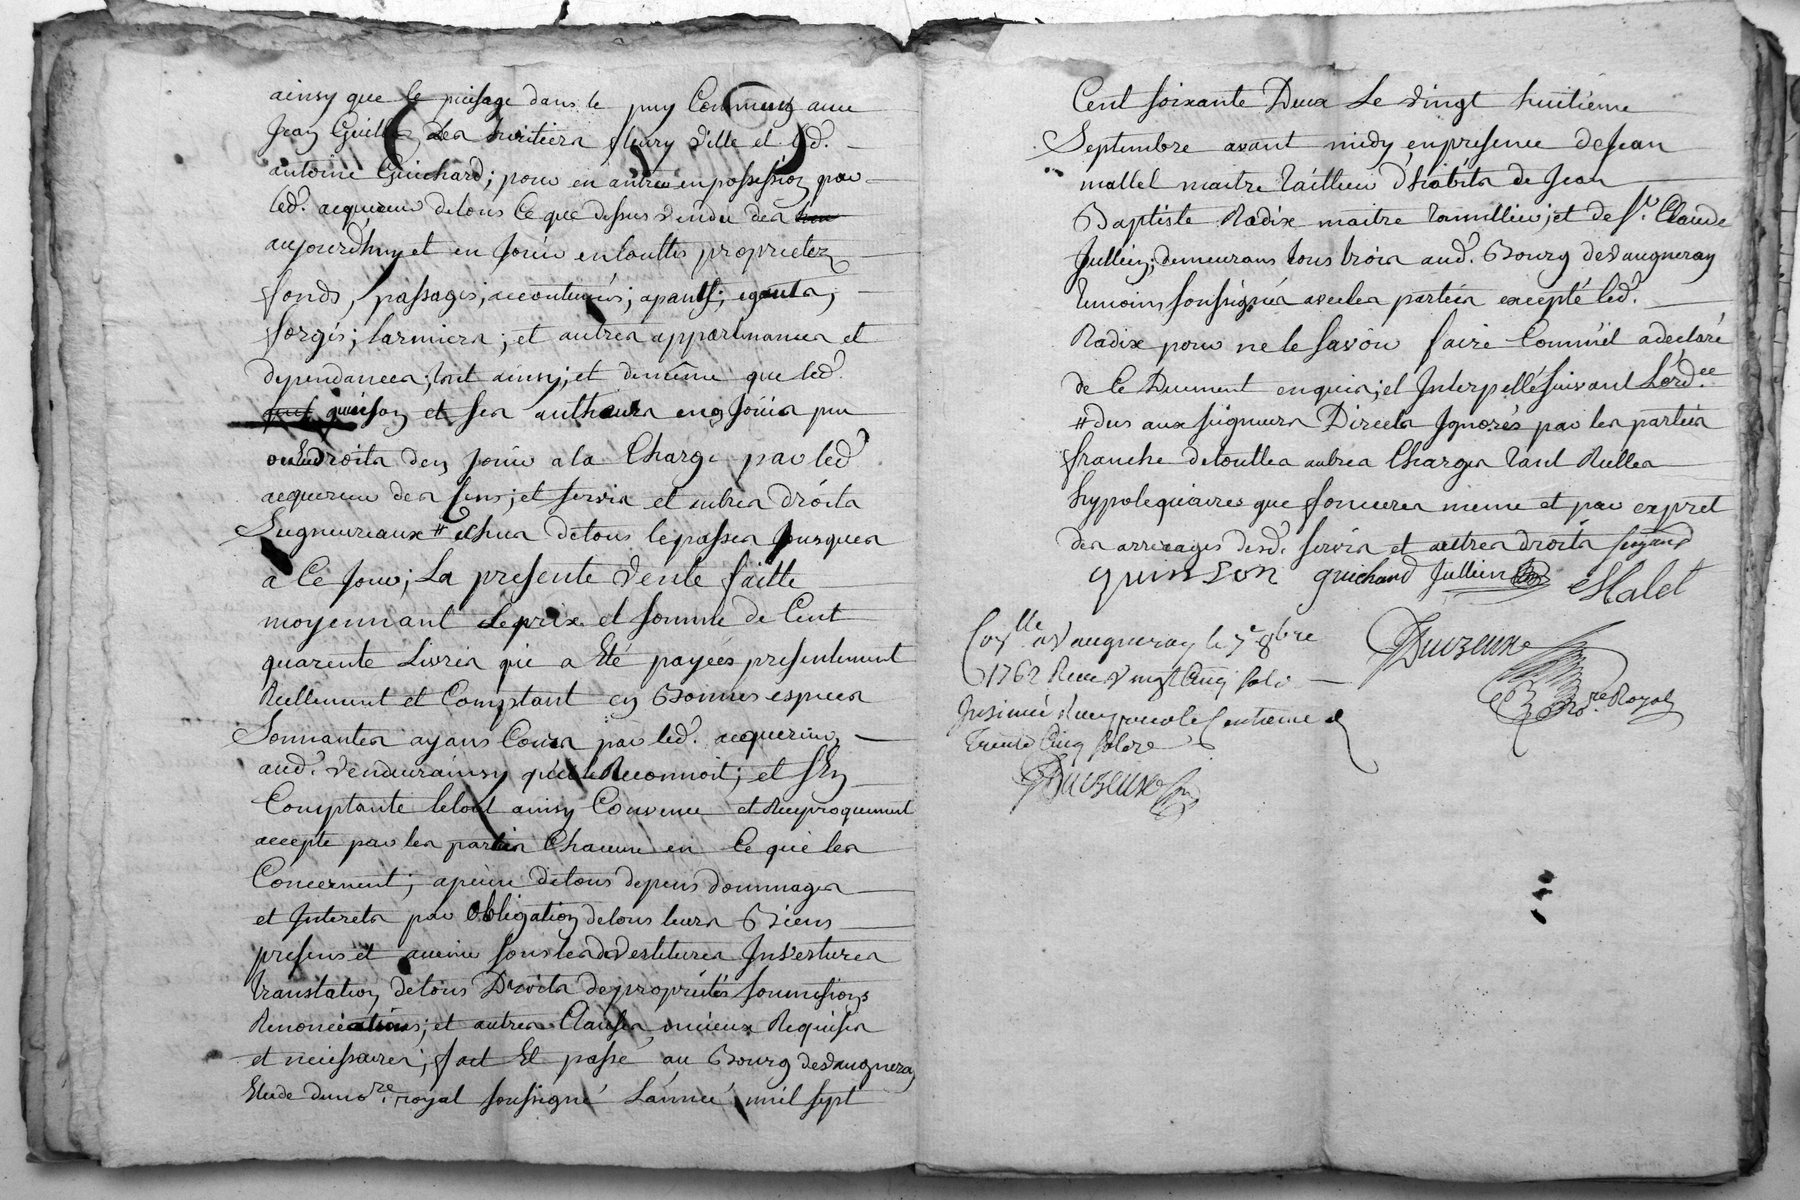 ainsy que le puisage dans le puy Commun avec
Jean Guille les heritiers fleury Dille et led.
antoine Guichard; pour en entrer en possession par
led. acquereur detous Ce que dessus vendu des
aujourdhuy et en Jouir entouttes proprietez
fonds, passages, accoutumés; apants; egouts,
forgés; larmiers; et autres appartenances et
dependances; tout ainsy; et demême que led.
quinson et ses autheurs eny Joüis pu
oudroits den Jouir a la Charge par led.
acquereur des Cens; et servis et autres dróits
Seigneuriaux # echus detous lepassés Jusques
a Cé Jour; La presente Vente faitte
moyennant Leprix et somme de Cent
quarente Livres qui a Eté payées presentement
Reellement et Comptant en Bonnes especes
Sonnantes ayans Cours par led. acquereur
aud. Vendeur ainsy quil le Reconnoit; et s'en
Comptante letout ainsy Convenu et Reciproquement
accepté par les parties Chacune en Ce qui les
Concernent; apeine detous depens dommages
et Interets par obligation detous leurs Biens
presens et avenir sous les devestitures Investures
translation detous Droits de proprietés soumissions
Renonciations; et autres Clauses, mieux Requises
et necessaires; fait Et passé au Bourg devaugneray
Etude duno.re royal soussigné L'année mil sept
Cent soixante Deux Le vingt huitième
Septembre avant midy enpresence deJean
mallet maitre tailleur d'habits de Jean
Baptiste Radix maitre ; et de Sr. Claude
Jullien; demeurans tous trois aud. Bourg devaugneray
temoins soussignés avec les parties excepté led.
Radix pour ne le savoir faire Comm'il adeclaré
de Ce Duement enquis; et Interpellé suivant Lord.ce
# dus aux seigneurs Directs Ignorés par les parties
franche detouttes autres Charges tant Reelles
hypotequaires que foncieres meme et par exprès
des arrerages desd. servis et autres droits seigaux
quinson guichard Jullien Malet
Con.lle a Vaugneray le 7e 8bre
1762 Receu vingt Cinq sols
Insinué Receu pour le Centieme d.
trente Cinq sols
Duvzeune
No.re Royal